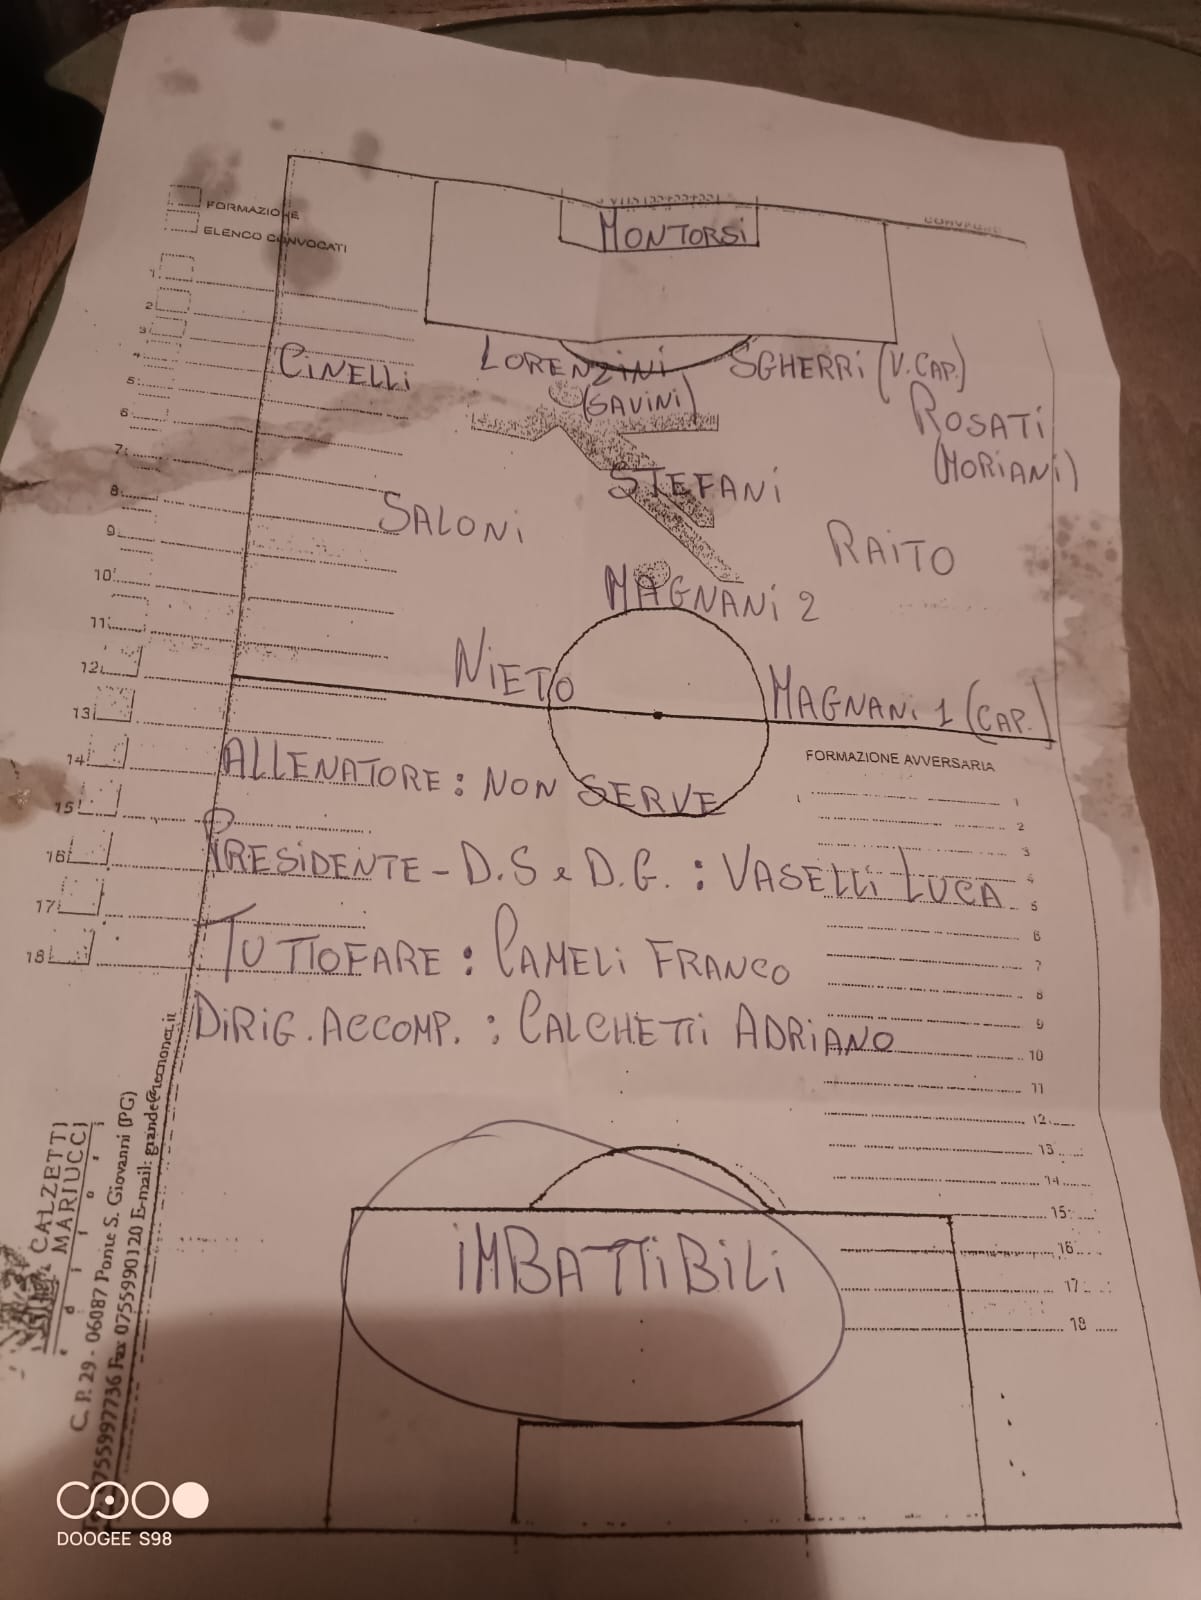 FORMAZIONE
ELENCO CONVOCATI
MONTORSI
1
2
3
4
5
6
7
8
9
10
11
12
13
14
15
16
17
18
CINELLI
LORENZINI
(SAVINI)
SGHERRI (V. CAP.)
ROSATI
(MORIANI)
STEFANI
SALONI
RAITO
MAGNANI 2
NIETO
MAGNANI 1 (CAP.)
FORMAZIONE AVVERSARIA
1
1
2
3
4
5
6
7
8
9
10
11
12
13
14
15
16
17
18
ALLENATORE: NON SERVE
PRESIDENTE - D.S e D.G. : VASELLI LUCA
TUTTOFARE : CAMELI FRANCO
DIRIG. ACCOMP. : CALCHETTI ADRIANO
IMBATTIBILI
CALZETTI
MARIUCCI
e d i t o r i
C. P. 29 - 06087 Ponte S. Giovanni (PG)
0755997736 Fax 0755990120 E-mail:
DOOGEE S98